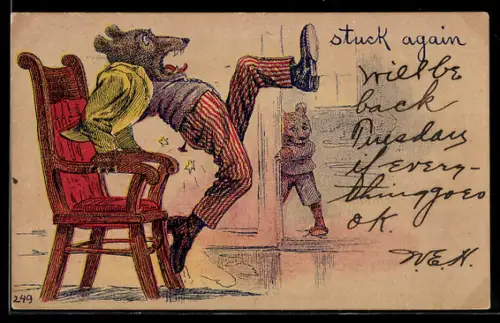 stuck again
will be
back
Tuesday
if every-
thing goes
OK.
W.E.H.
249